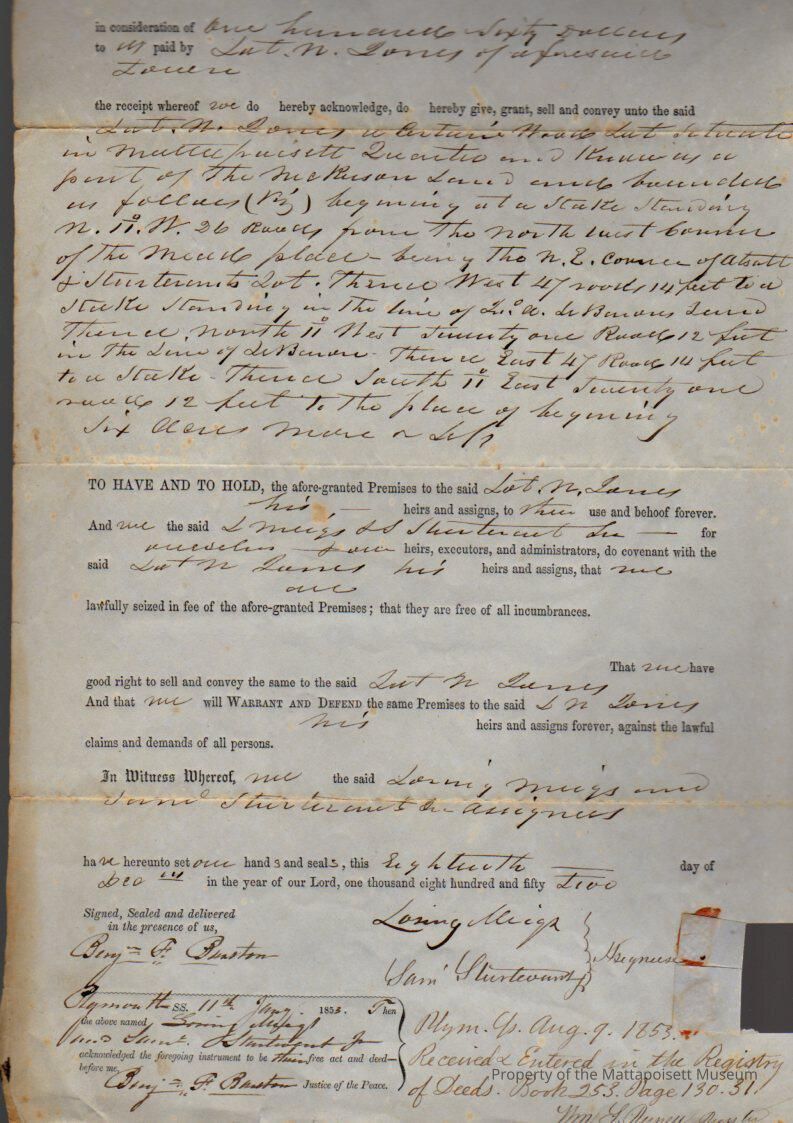 in consideration of One hundred Sixty Dollars
to us paid by Lot. N. Jones of aforesaid
Town
the receipt whereof we do hereby acknowledge, do hereby give, grant, sell and convey unto the said
Lot. N. Jones a Certain Wood Lot Situate
in Mattapoisett Quarter and Known as a
part of the Land and bounded
as follows (Viz) beginning at a Stake Standing
N. 11° W. 26 Roods from the North west Corner
of the Mead place - being the N. E. corner of
& Sturtevants Lot. Thence West 47 roods 14 feet to a
Stake Standing in the line of LeBarons Land
Thence North 11° West Twenty one Roods 12 feet
in the Line of LeBaron - Thence East 47 Roods 14 feet
to a Stake - Thence South 11° East Twenty one
roods 12 feet to the place of beginning
Six Acres more or Less
TO HAVE AND TO HOLD, the afore-granted Premises to the said Lot. N. Jones
his heirs and assigns, to their use and behoof forever.
And we the said L Meigs & S Sturtevant Jr — for
ourselves & our heirs, executors, and administrators, do covenant with the
said Lot N Jones his heirs and assigns, that we
are
lawfully seized in fee of the afore-granted Premises; that they are free of all incumbrances.
That we have
good right to sell and convey the same to the said Lot N Jones
And that we will WARRANT AND DEFEND the same Premises to the said L N Jones
his heirs and assigns forever, against the lawful
claims and demands of all persons.
In Witness Whereof, we the said Loring Meigs and
Saml Sturtevant Jr Assignees
have hereunto set our hands and seals, this Eighteenth — day of
Dec in the year of our Lord, one thousand eight hundred and fifty Two
Signed, Sealed and delivered
in the presence of us,
Loring Meigs
Benj = F. Barstow
Assignees
Sam' Sturtevant Jr
Plymouth SS. 11th Jany. 1853. Then
the above named Loring Meigs
and Saml. Sturtevant Jr
acknowledged the foregoing instrument to be their free act and deed—
before me,
Benj = F. Barstow Justice of the Peace.
Plym. Ss. Aug. 9. 1853.
Received & Entered in the Registry
of Deeds. Book 253. Page 130.31.
Wm S. Register
Property of the Mattapoisett Museum